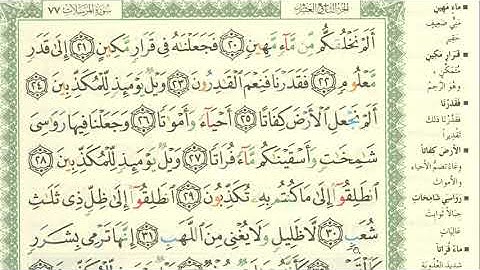 الجزء التاسع العشرون
سورة المرسلات ٧٧
أَلَمْ نَخْلُقكُّم مِّن مَّآءٍ مَّهِينٍ ٢٠ فَجَعَلْنَٰهُ فِى قَرَارٍ مَّكِينٍ ٢١ إِلَىٰ قَدَرٍ
مَّعْلُومٍ ٢٢ فَقَدَرْنَا فَنِعْمَ ٱلْقَٰدِرُونَ ٢٣ وَيْلٌ يَوْمَئِذٍ لِّلْمُكَذِّبِينَ ٢٤
أَلَمْ نَجْعَلِ ٱلْأَرْضَ كِفَاتًا ٢٥ أَحْيَآءً وَأَمْوَٰتًا ٢٦ وَجَعَلْنَا فِيهَا رَوَٰسِىَ
شَٰمِخَٰتٍ وَأَسْقَيْنَٰكُم مَّآءً فُرَاتًا ٢٧ وَيْلٌ يَوْمَئِذٍ لِّلْمُكَذِّبِينَ ٢٨
ٱنطَلِقُوٓا۟ إِلَىٰ مَا كُنتُم بِهِۦ تُكَذِّبُونَ ٢٩ ٱنطَلِقُوٓا۟ إِلَىٰ ظِلٍّ ذِى ثَلَٰثِ
شُعَبٍ ٣٠ لَّا ظَلِيلٍ وَلَا يُغْنِى مِنَ ٱللَّهَبِ ٣١ إِنَّهَا تَرْمِى بِشَرَرٍ
ماء مهين
منيّ ضعيف
حقير
قرار مكين
متمكن
وهو الرحم
فقدرنا
فقدّرنا ذلك
تقديراً
الأرض كفاتاً
وعاء تضم الأحياء
والأموات
رواسي شامخات
جبالاً ثوابت
عاليات
ماءً فراتاً
شديد العذوبة